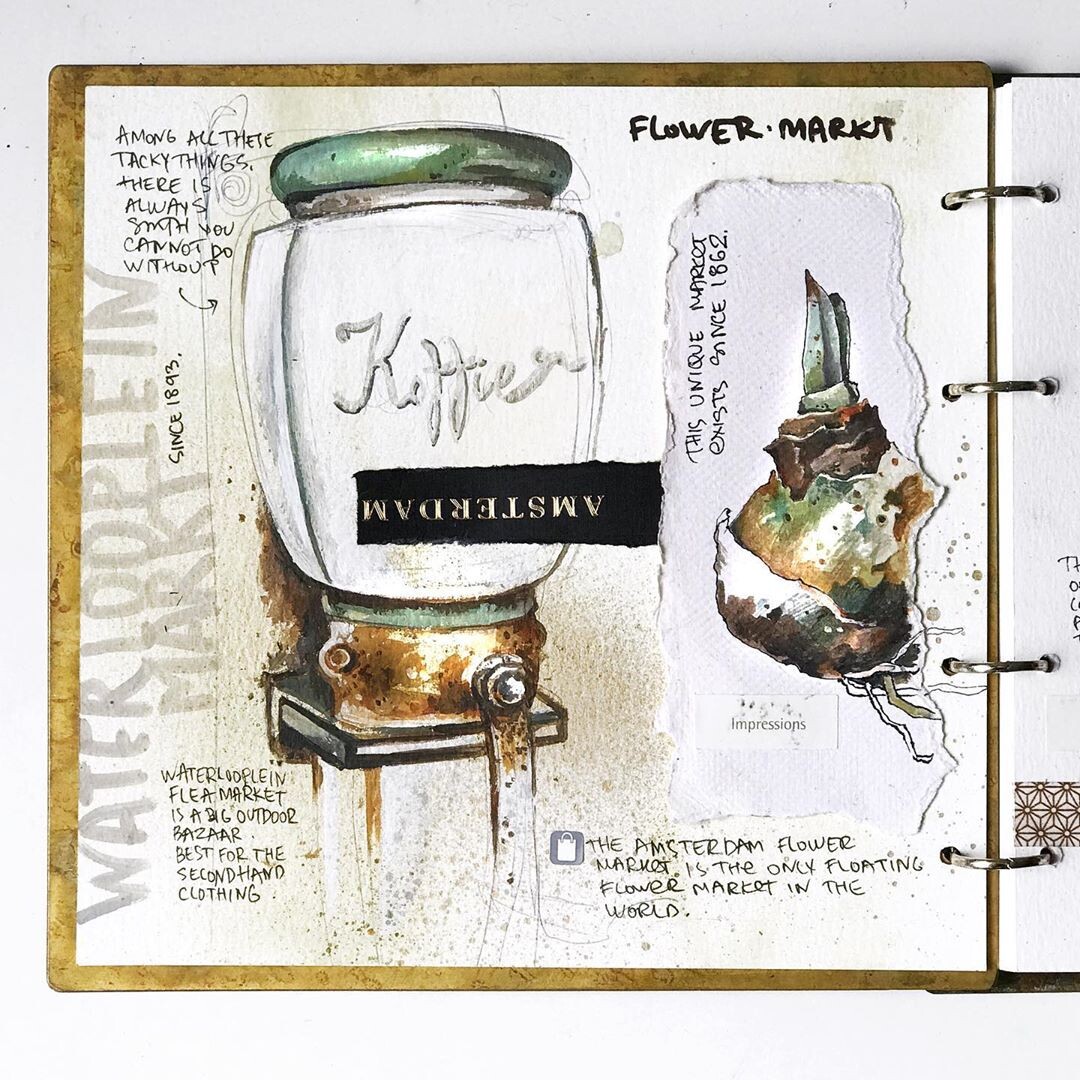 AMONG ALL THESE
TACKY THINGS.
THERE IS
ALWAYS
SMTH YOU
CANNOT DO
WITHOUT
SINCE 1893.
WATERLOOPLEIN
MARKT
Koffie
AMSTERDAM
WATERLOOPLEIN
FLEA MARKET
IS A BIG OUTDOOR
BAZAAR.
BEST FOR THE
SECONDHAND
CLOTHING.
FLOWER·MARKT
THIS UNIQUE MARKET
EXISTS SINCE 1862.
Impressions
THE AMSTERDAM FLOWER
MARKET IS THE ONLY FLOATING
FLOWER MARKET IN THE
WORLD.